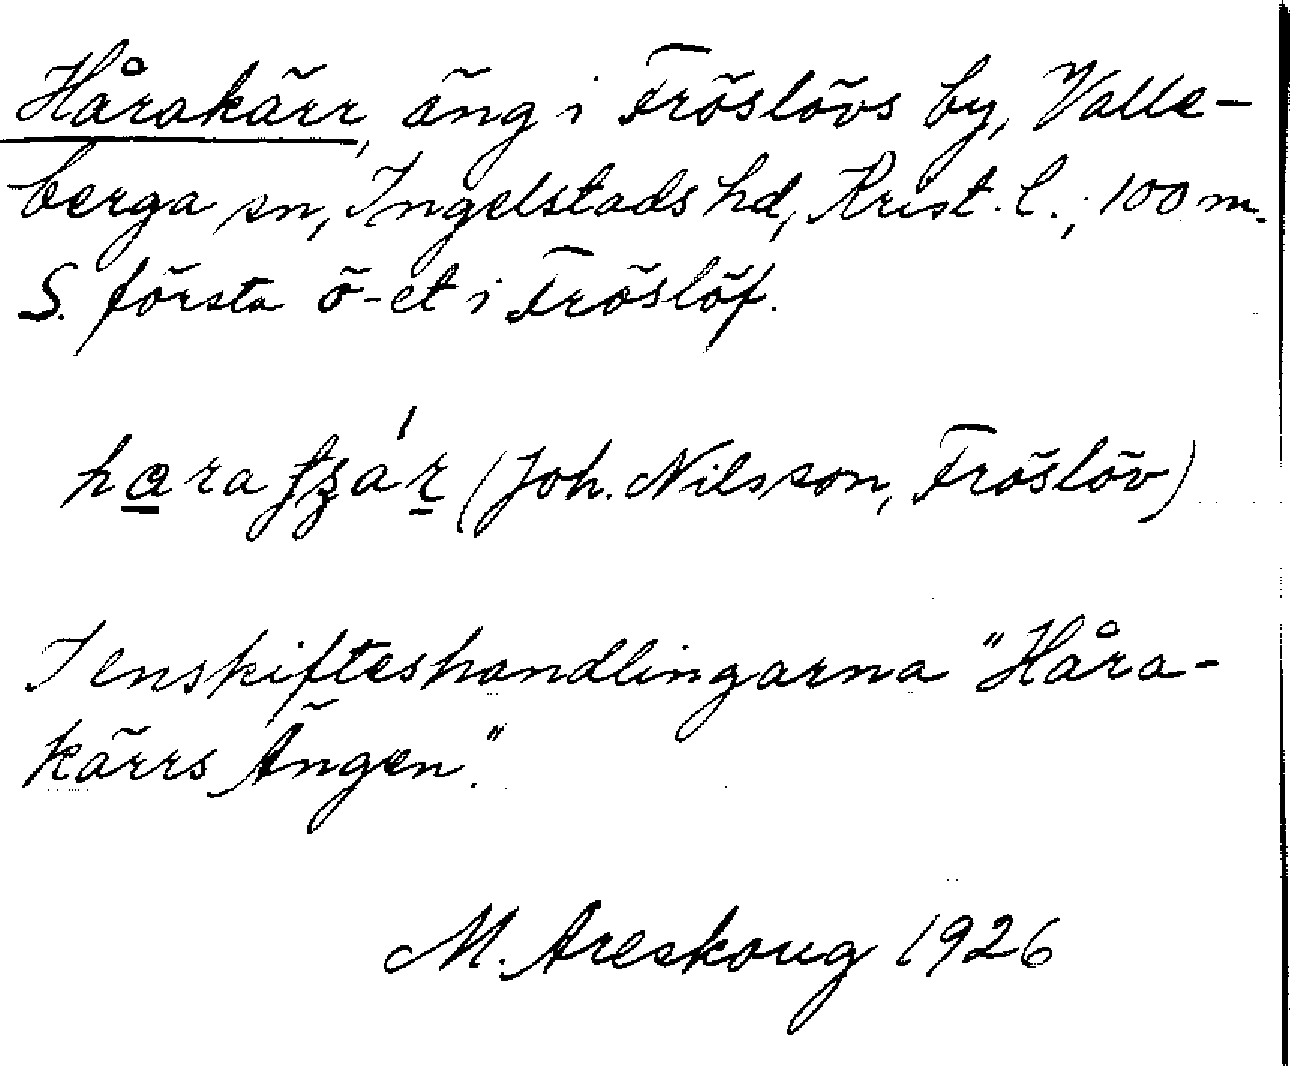 Hårakärr, äng i Fröslövs by, Valle-
berga sn, Ingelstads hd, Krist. l.; 100 m.
S. första ö-et i Fröslöf.
(Joh. Nilsson, Fröslöv)
I enskifteshandlingarna "Håra-
kärrs Ängen."
M. Areskoug 1926